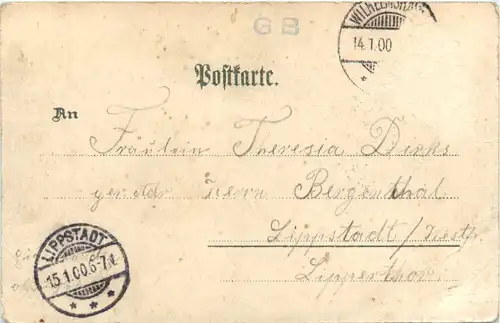 GB
WILHELMSHAVEN
14.1.00
Postkarte.
An
Fräulein Theresia Dirks
per Adr Herrn Bergenthal
Lippstadt / Westf
Lipperthor
LIPPSTADT
15.1.00.6-7V.